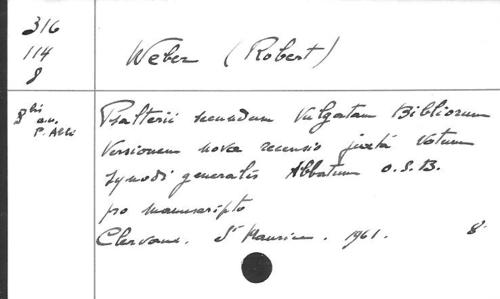 316
114
8
Weber (Robert)
8 bis
a.u.
P. Abbé
Psalterii secundum Vulgatam Bibliorum
Versionem nova recensio juxta Votum
Synodi generalis Abbatum O.S.B.
pro manuscripto
Clervaux. St Maurice. 1961. 8°